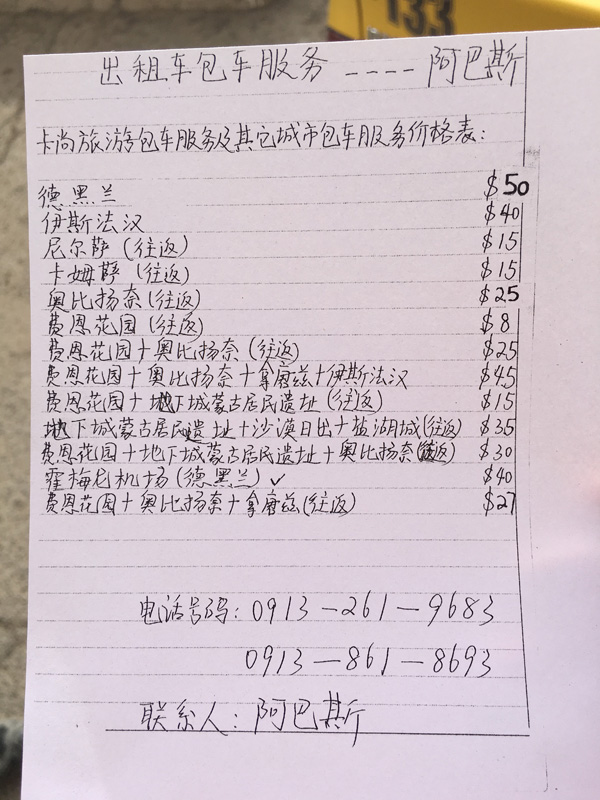 133
出租车包车服务 ---- 阿巴斯
卡尚旅游包车服务及其它城市包车服务价格表:
德黑兰 $50
伊斯法汉 $40
尼尔萨(往返) $15
卡姆萨(往返) $15
奥比扬奈(往返) $25
费恩花园(往返) $8
费恩花园+奥比扬奈(往返) $25
费恩花园+奥比扬奈+拿唐兹+伊斯法汉 $45
费恩花园+地下城蒙古居民遗址(往返) $15
地下城蒙古居民遗址+沙漠日出+盐湖城(往返) $35
费恩花园+地下城蒙古居民遗址+奥比扬奈(往返) $30
霍梅尼机场(德黑兰)✓ $40
费恩花园+奥比扬奈+拿唐兹(往返) $27
电话号码:0913-261-9683
0913-861-8693
联系人:阿巴斯